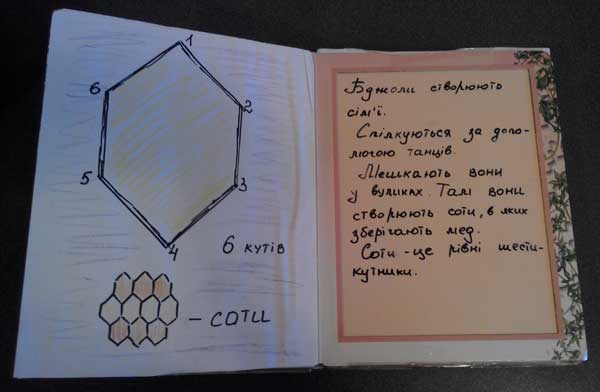 1
6
2
5
3
4
6 кутів
- соти
Бджоли створюють
сім'ї.
Спілкуються за допо-
могою танців.
Мешкають вони
у вуликах. Там вони
створюють соти, в яких
зберігають мед.
Соти - це рівні шести-
кутники.